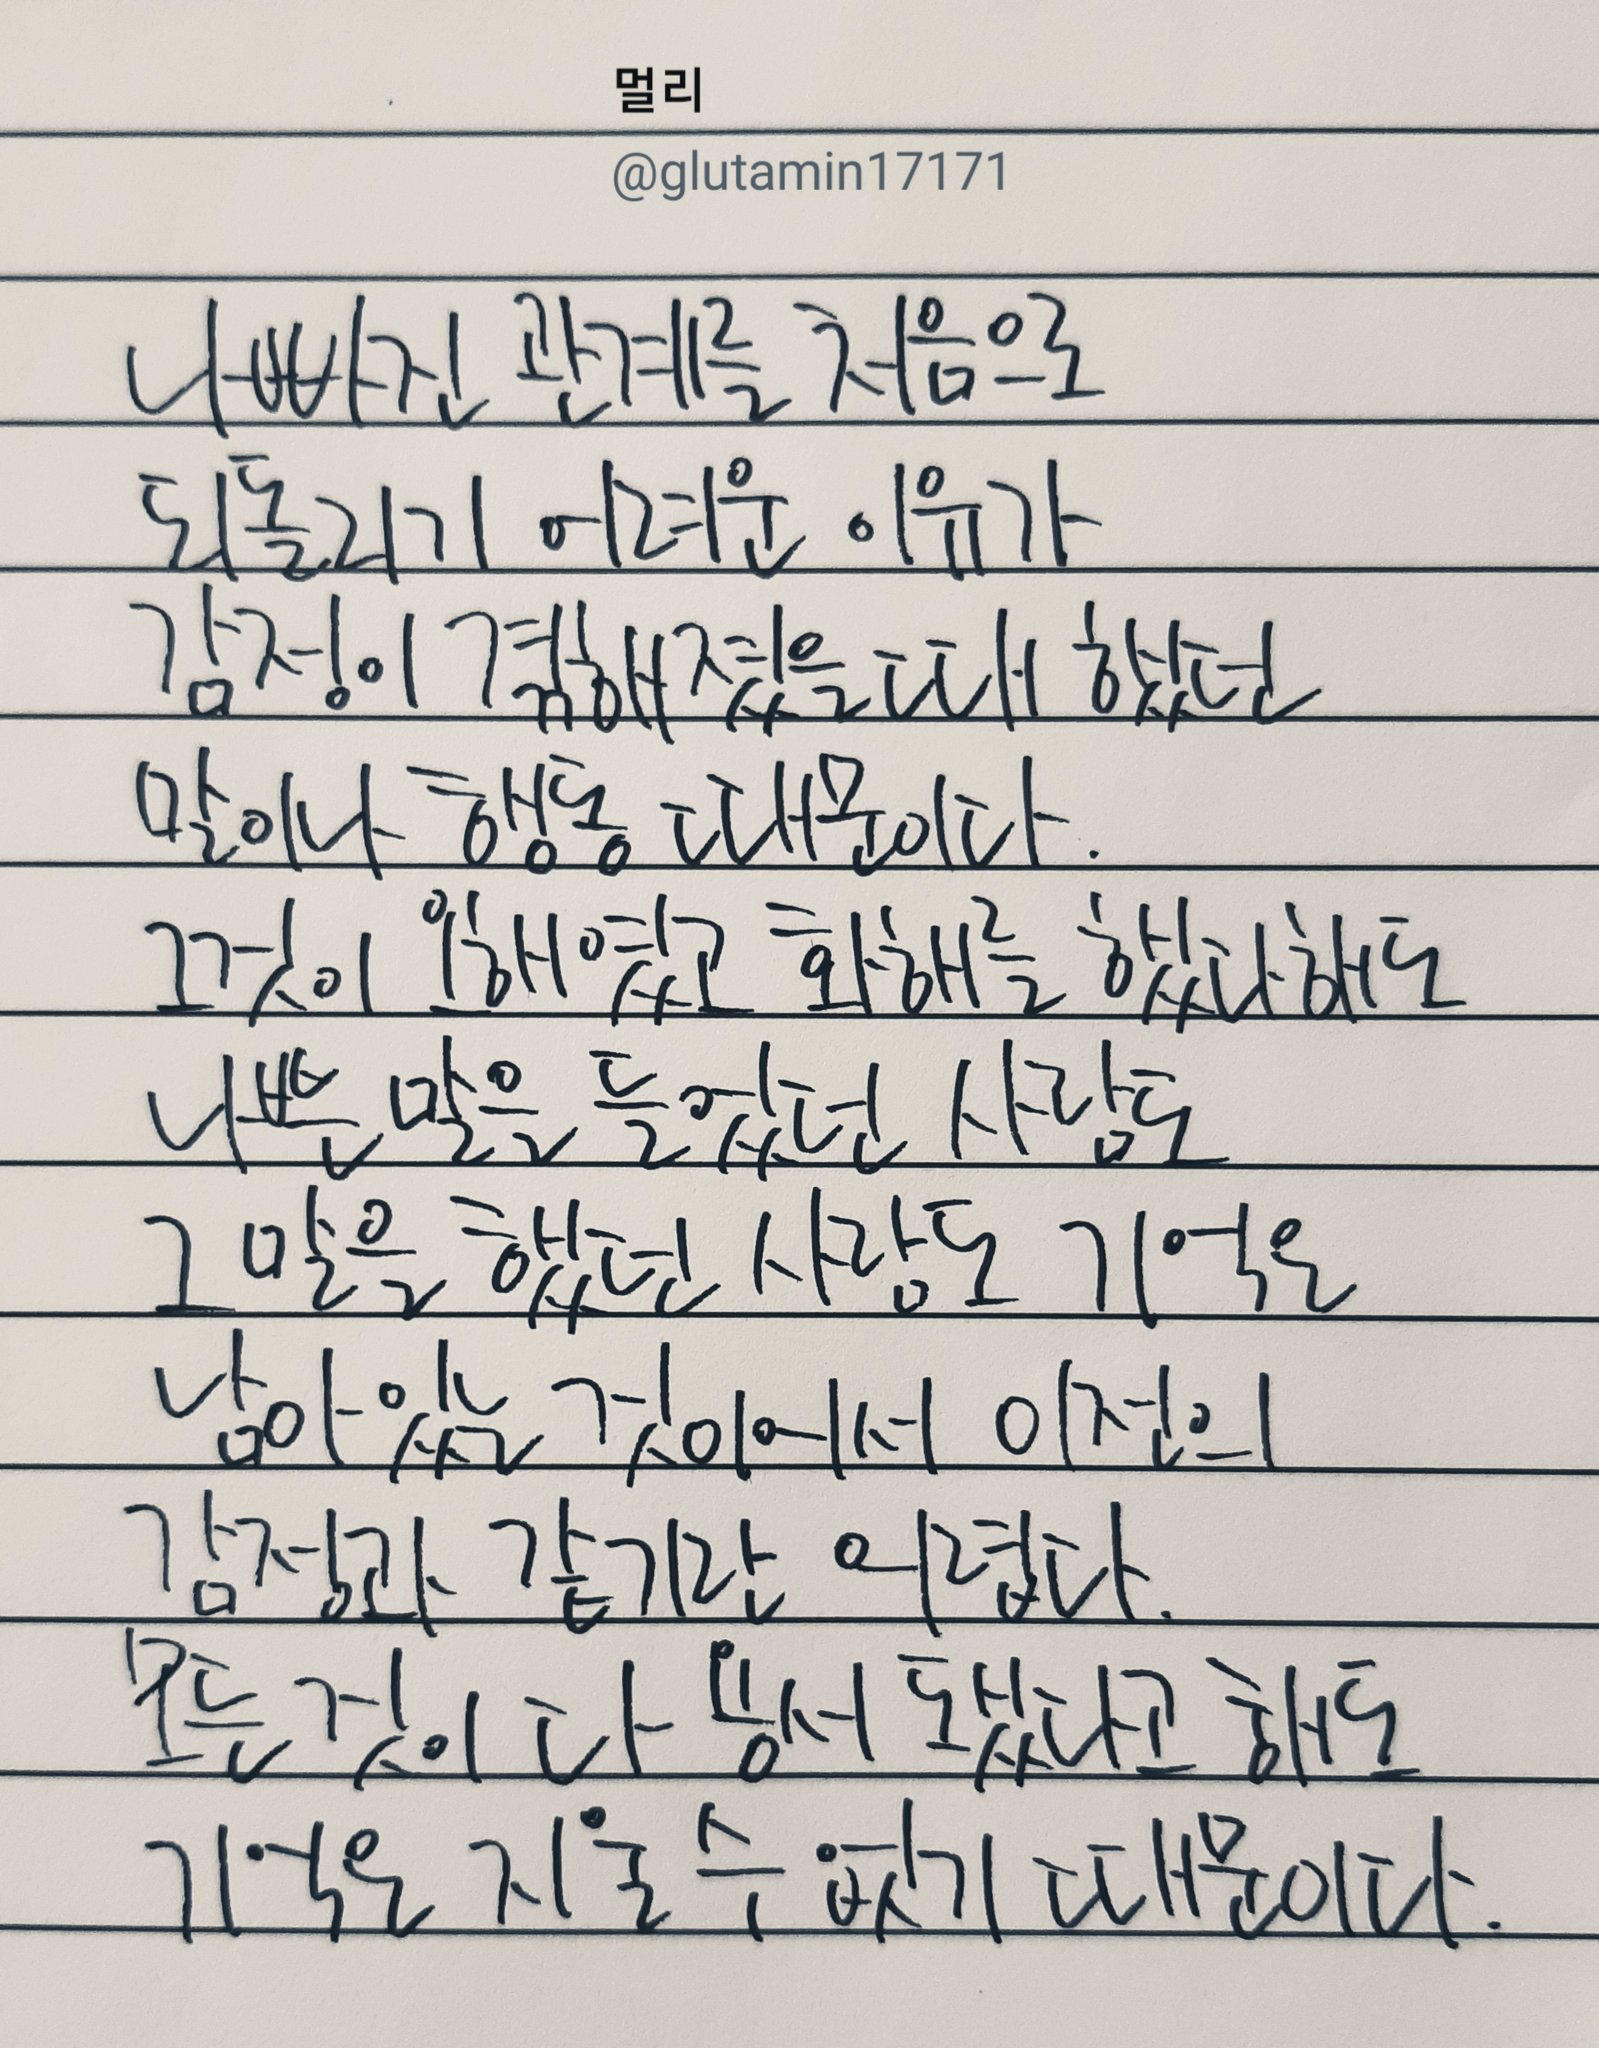 멀리
@glutamin17171
나빠진 관계를 처음으로
되돌리기 어려운 이유가
감정이 격해졌을 때 했던
말이나 행동 때문이다.
그것이 오해였고 화해를 했다해도
나쁜 말을 들었던 사람도
그 말을 했던 사람도 기억은
남아있는 것이어서 이전의
감정과 같기란 어렵다.
모든 것이 다 용서 됐다고 해도
기억은 지울 수 없기 때문이다.